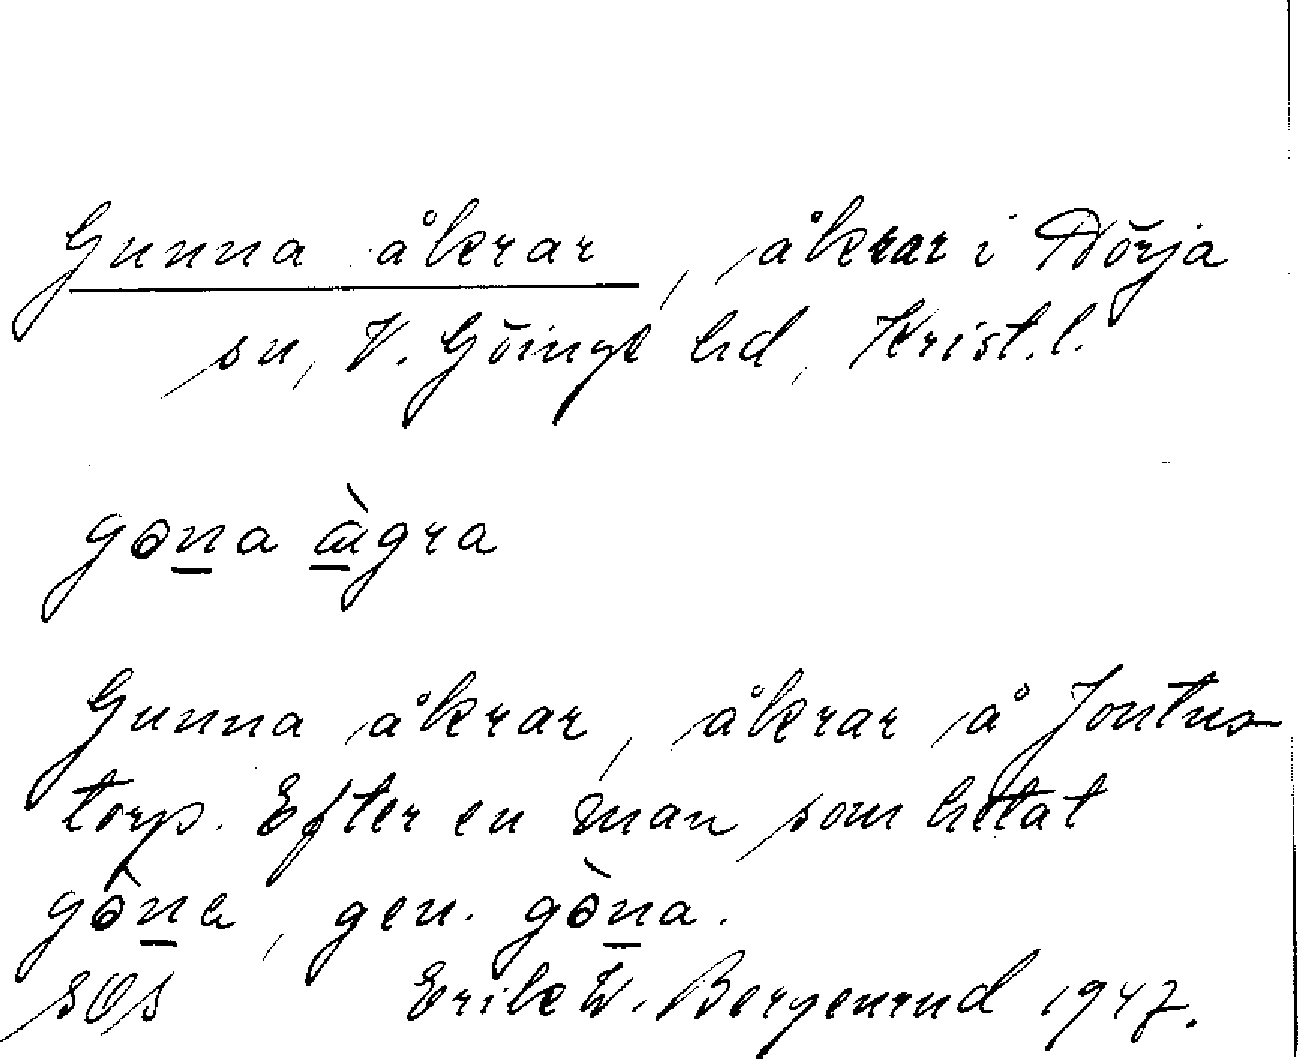 Gunna åkrar, åkrar i Nörja
sn, V. Göinge hd, Krist. l.
gona àgra
Gunna åkrar, åkrar å Jontus
torp. Efter en man som hetat
gòna, gen. gòna.
SOS Erik W. Bergenrud 1947.